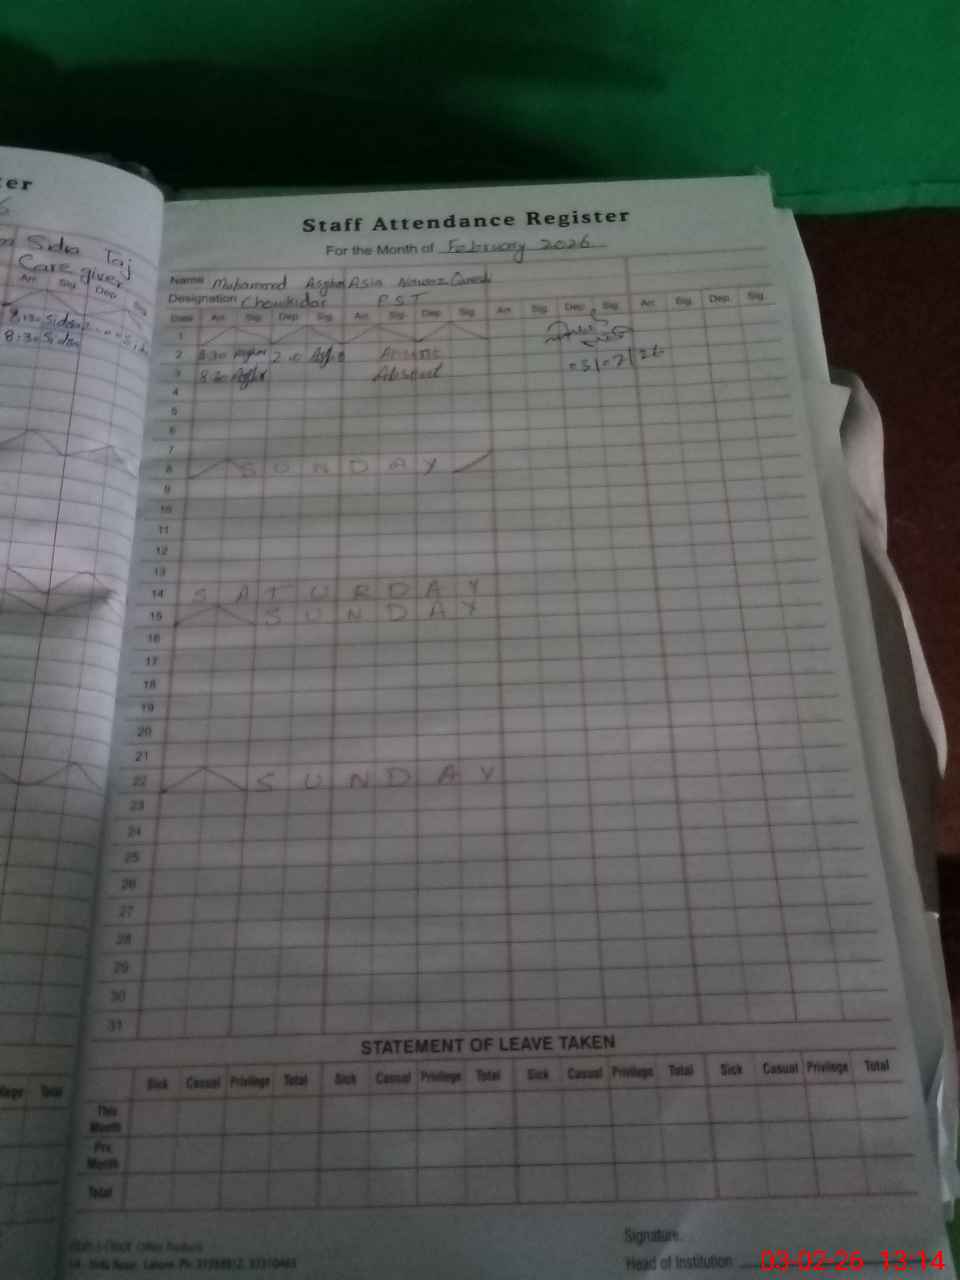 ter
Sidra Taj
Care giver
Arr. Sig. Dep. Sig.
8:30 Sidra
8:30 Sidra
Staff Attendance Register
For the Month of February 2026
Name Muhammad Asghar Asia Nawaz
Designation Chowkidar P.S.T
Date Arr. Sig. Dep. Sig. Arr. Sig. Dep. Sig. Arr. Sig. Dep. Sig. Arr. Sig. Dep. Sig.
1
2 8:30 Asghar 2:00 Asghar Absent
3 8:30 Asghar Absent 03/02/26
4
5
6
7
8 SUNDAY
9
10
11
12
13
14 SATURDAY
15 SUNDAY
16
17
18
19
20
21
22 SUNDAY
23
24
25
26
27
28
29
30
31
STATEMENT OF LEAVE TAKEN
Sick Casual Privilege Total Sick Casual Privilege Total Sick Casual Privilege Total Sick Casual Privilege Total
This Month
Prv. Month
Total
Total
Signature.
Head of Institution
03-02-26 13:14